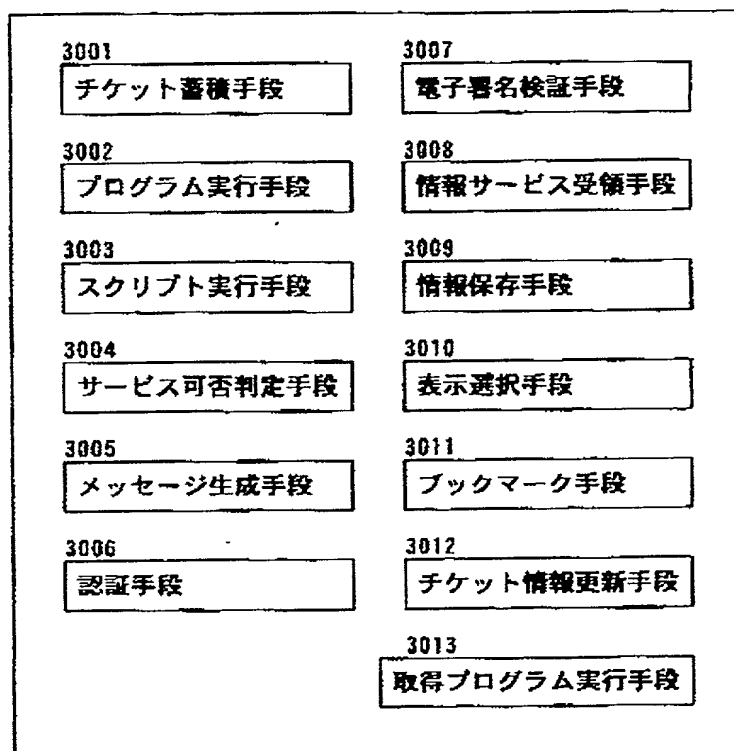 3001
チケット蓄積手段
3002
プログラム実行手段
3003
スクリプト実行手段
3004
サービス可否判定手段
3005
メッセージ生成手段
3006
認証手段
3007
電子署名検証手段
3008
情報サービス受領手段
3009
情報保存手段
3010
表示選択手段
3011
ブックマーク手段
3012
チケット情報更新手段
3013
取得プログラム実行手段